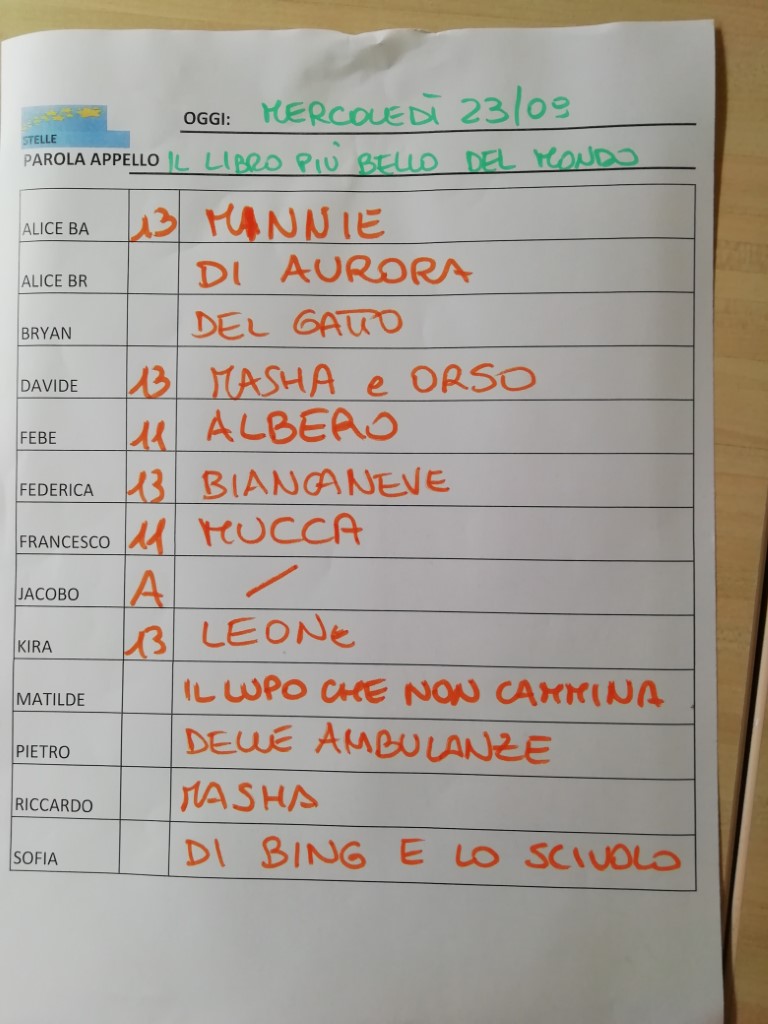 OGGI: MERCOLEDÌ 23/09
STELLE
PAROLA APPELLO IL LIBRO PIÙ BELLO DEL MONDO
ALICE BA 13 MINNIE
ALICE BR DI AURORA
BRYAN DEL GATTO
DAVIDE 13 MASHA e ORSO
FEBE 11 ALBERO
FEDERICA 13 BIANCANEVE
FRANCESCO 11 MUCCA
JACOBO A /
KIRA 13 LEONe
MATILDE IL LUPO CHE NON CAMMINA
PIETRO DELLE AMBULANZE
RICCARDO MASHA
SOFIA DI BING E LO SCIVOLO